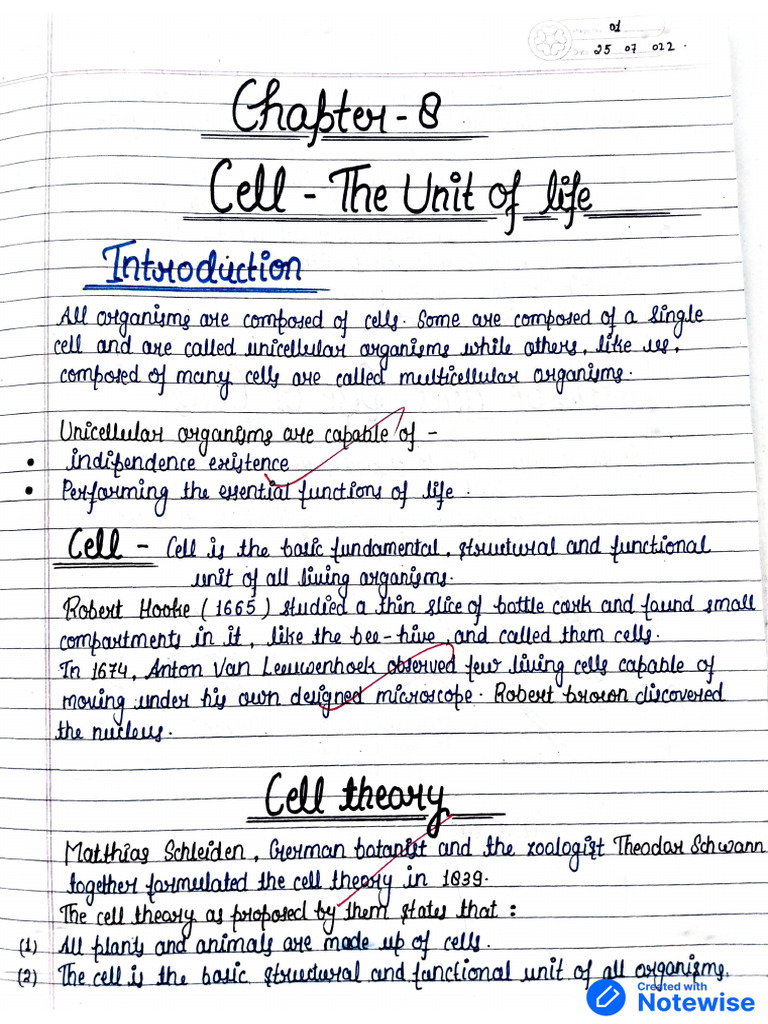 01
25 07 022.
Chapter - 8
Cell - The Unit of life
Introduction
All organisms are composed of cells. Some are composed of a single
cell and are called unicellular organisms while others, like us,
composed of many cells are called multicellular organisms.
Unicellular organisms are capable of -
• indipendence existence
• Performing the essential functions of life.
Cell - Cell is the basic fundamental, structural and functional
unit of all living organisms.
Robert Hooke (1665) studied a thin slice of bottle cork and found small
compartments in it, like the bee-hive, and called them cells.
In 1674, Anton Van Leeuwenhoek observed few living cells capable of
moving under his own designed microscope. Robert brown discovered
the nucleus.
Cell theory
Matthias Schleiden, German botanist and the zoologist Theodar Schwann
together formulated the cell theory in 1839.
The cell theory as proposed by them states that :
(1) All plants and animals are made up of cells.
(2) The cell is the basic structural and functional unit of all organisms.
Created with
Notewise